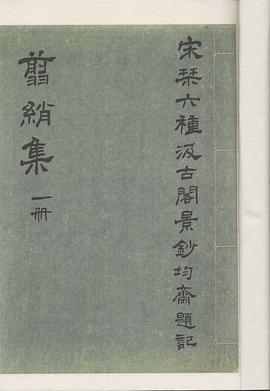 宋槧六種汲古閣景鈔均齋題記
翦綃集 一冊